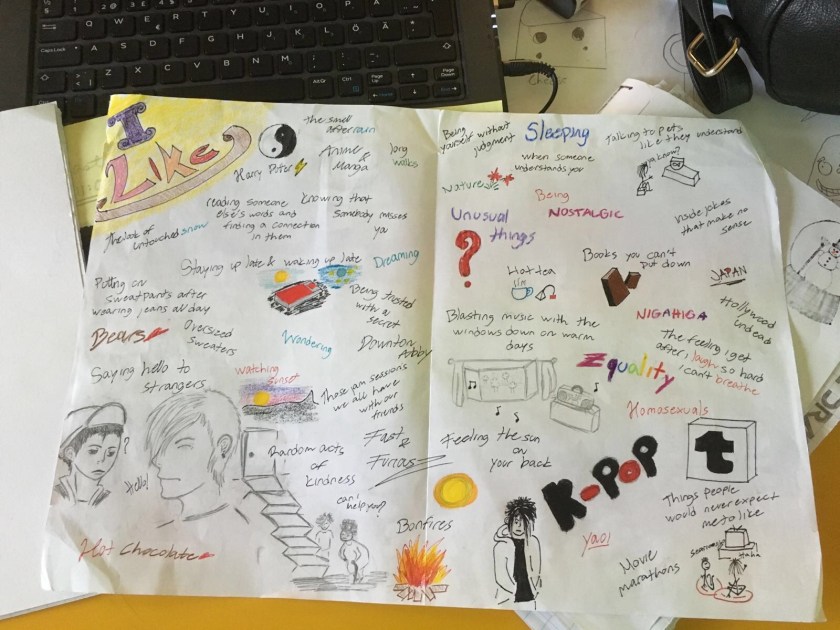 I
LIKE
The smell
after rain
Harry Potter
Anime
&
Manga
long
walks
The look of
untouched snow
reading someone
else's words and
finding a connection
in them
Knowing that
somebody misses
you
Staying up late & waking up late
Dreaming
Putting on
sweatpants after
wearing jeans all day
Being trusted
with a
secret
Bears
Oversized
sweaters
Wondering
Downton
Abby
Saying hello to
strangers
Watching
sunset
Those jam sessions
we all have
with our
friends
?
Hello!
Random acts
of
kindness
Fast
&
Furious
can I
help you?
Hot Chocolate
Bonfires
Being
yourself without
judgment
Sleeping
Talking to pets
like they understand
ya know?
when someone
understands you
Nature
Being
NOSTALGIC
Unusual
things
?
inside jokes
that make no
sense
Hot tea
Books you can't
put down
JAPAN
Blasting music with the
windows down on warm
days
NIGAHIGA
Hollywood
undead
The feeling I get
after I laugh so hard
I can't breathe
Equality
Homosexuals
Feeling the sun
on
your back
K-POP
t
Things people
would never expect
me to like
yaoi
Movie
marathons
haha
Caps Lock
Alt Gr
Ctrl
Page
Up
Page
Down